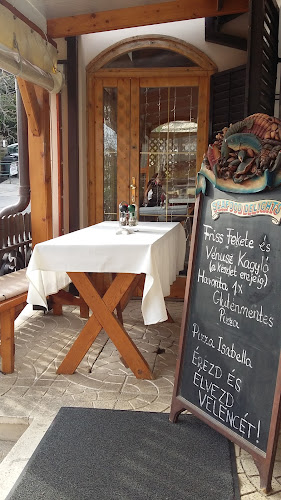 SEAFOOD DELIGHTS
Friss Fekete és
Vénusz Kagyló
(a kezdet ereje!)
Havonta 1x
Gluténmentes
Pizza
Pizza Isabella
ÉREZD ÉS
ÉLVEZD
VELENCÉT!